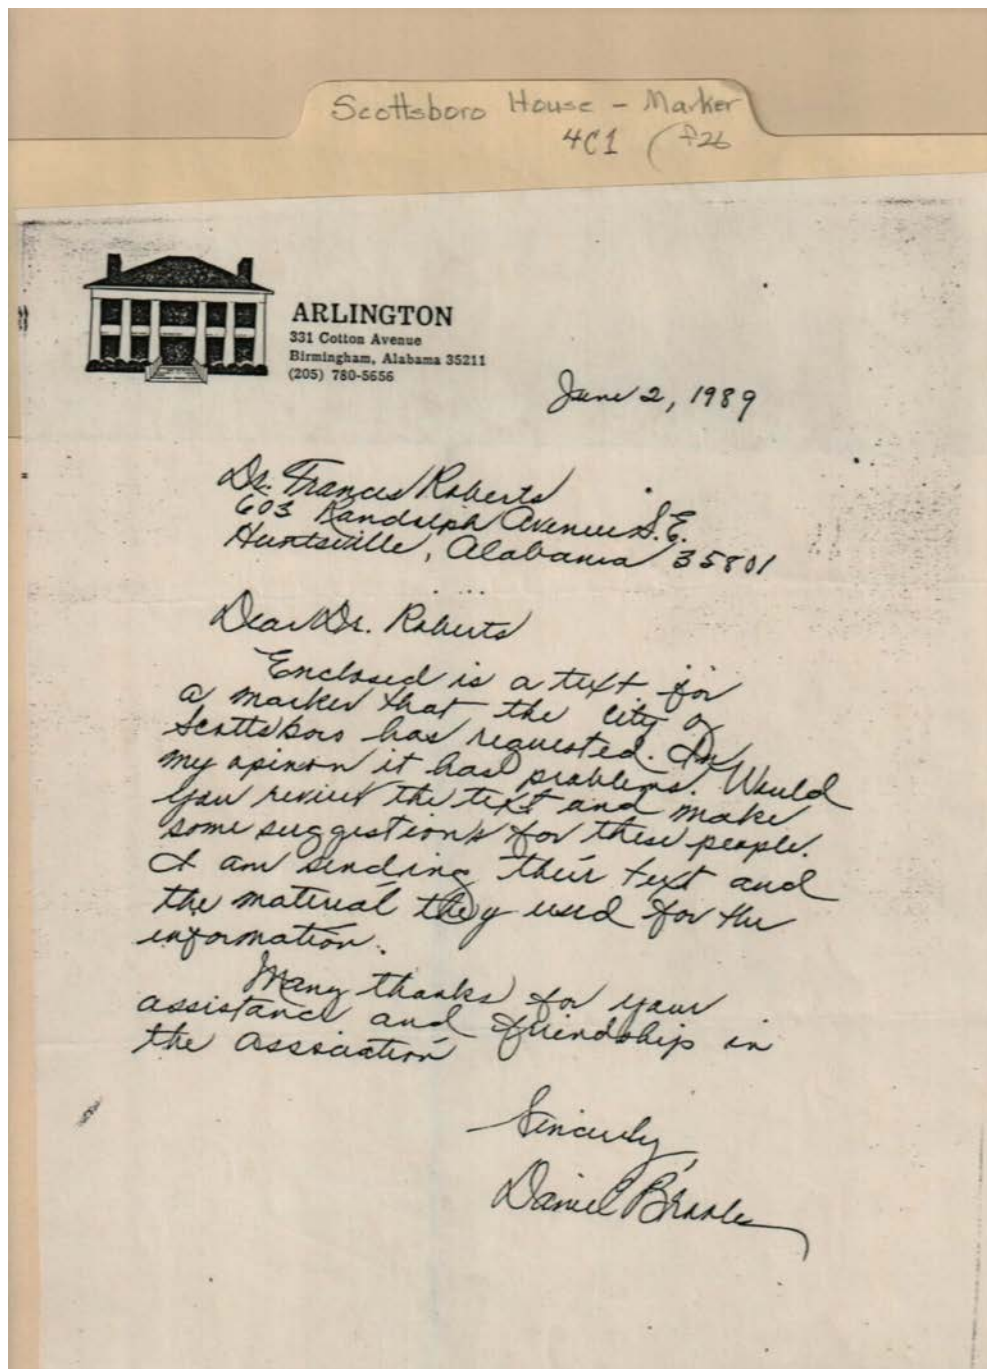 Scottsboro House - Marker
4C1 (f26
ARLINGTON
331 Cotton Avenue
Birmingham, Alabama 35211
(205) 780-5656
June 2, 1989
Dr. Frances Roberts
603 Randolph Avenue S.E.
Huntsville, Alabama 35801
Dear Dr. Roberts
Enclosed is a text for
a marker that the city of
Scottsboro has requested. In
my opinon it has problems. Would
you review the text and make
some suggestions for these people.
I am sending their text and
the material they used for the
information.
Many thanks for your
assistance and friendship in
the association
Sincerely,
Daniel